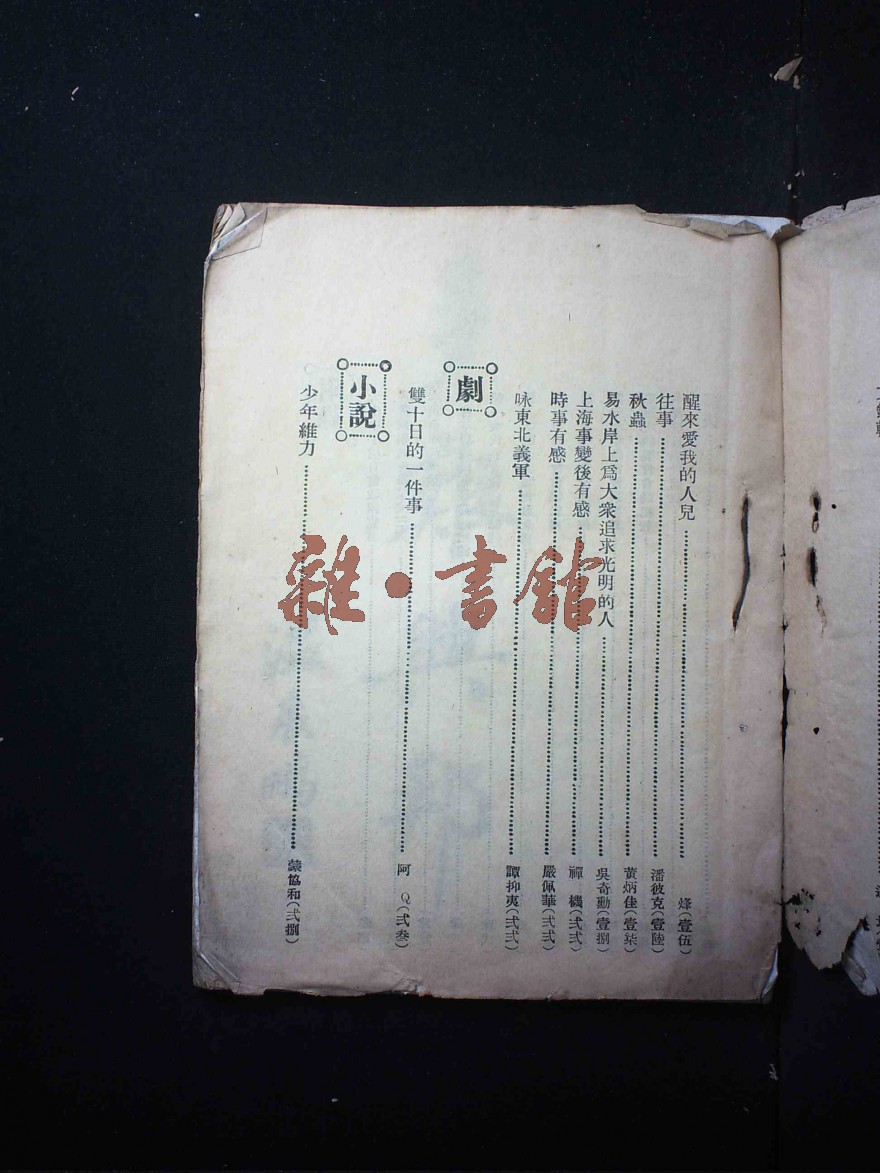 醒來愛我的人兒 烽(壹伍)
往事 潘彼克(壹陸)
秋蟲 黃炳佳(壹柒)
易水岸上爲大衆追求光明的人 吳奇勳(壹捌)
上海事變後有感 禪機(弍弍)
時事有感 嚴佩華(弍弍)
咏東北義軍 譚抑夷(弍弍)
劇
雙十日的一件事 阿Q(弍叁)
小說
少年維力 蒙協和(弍捌)
雜·書館